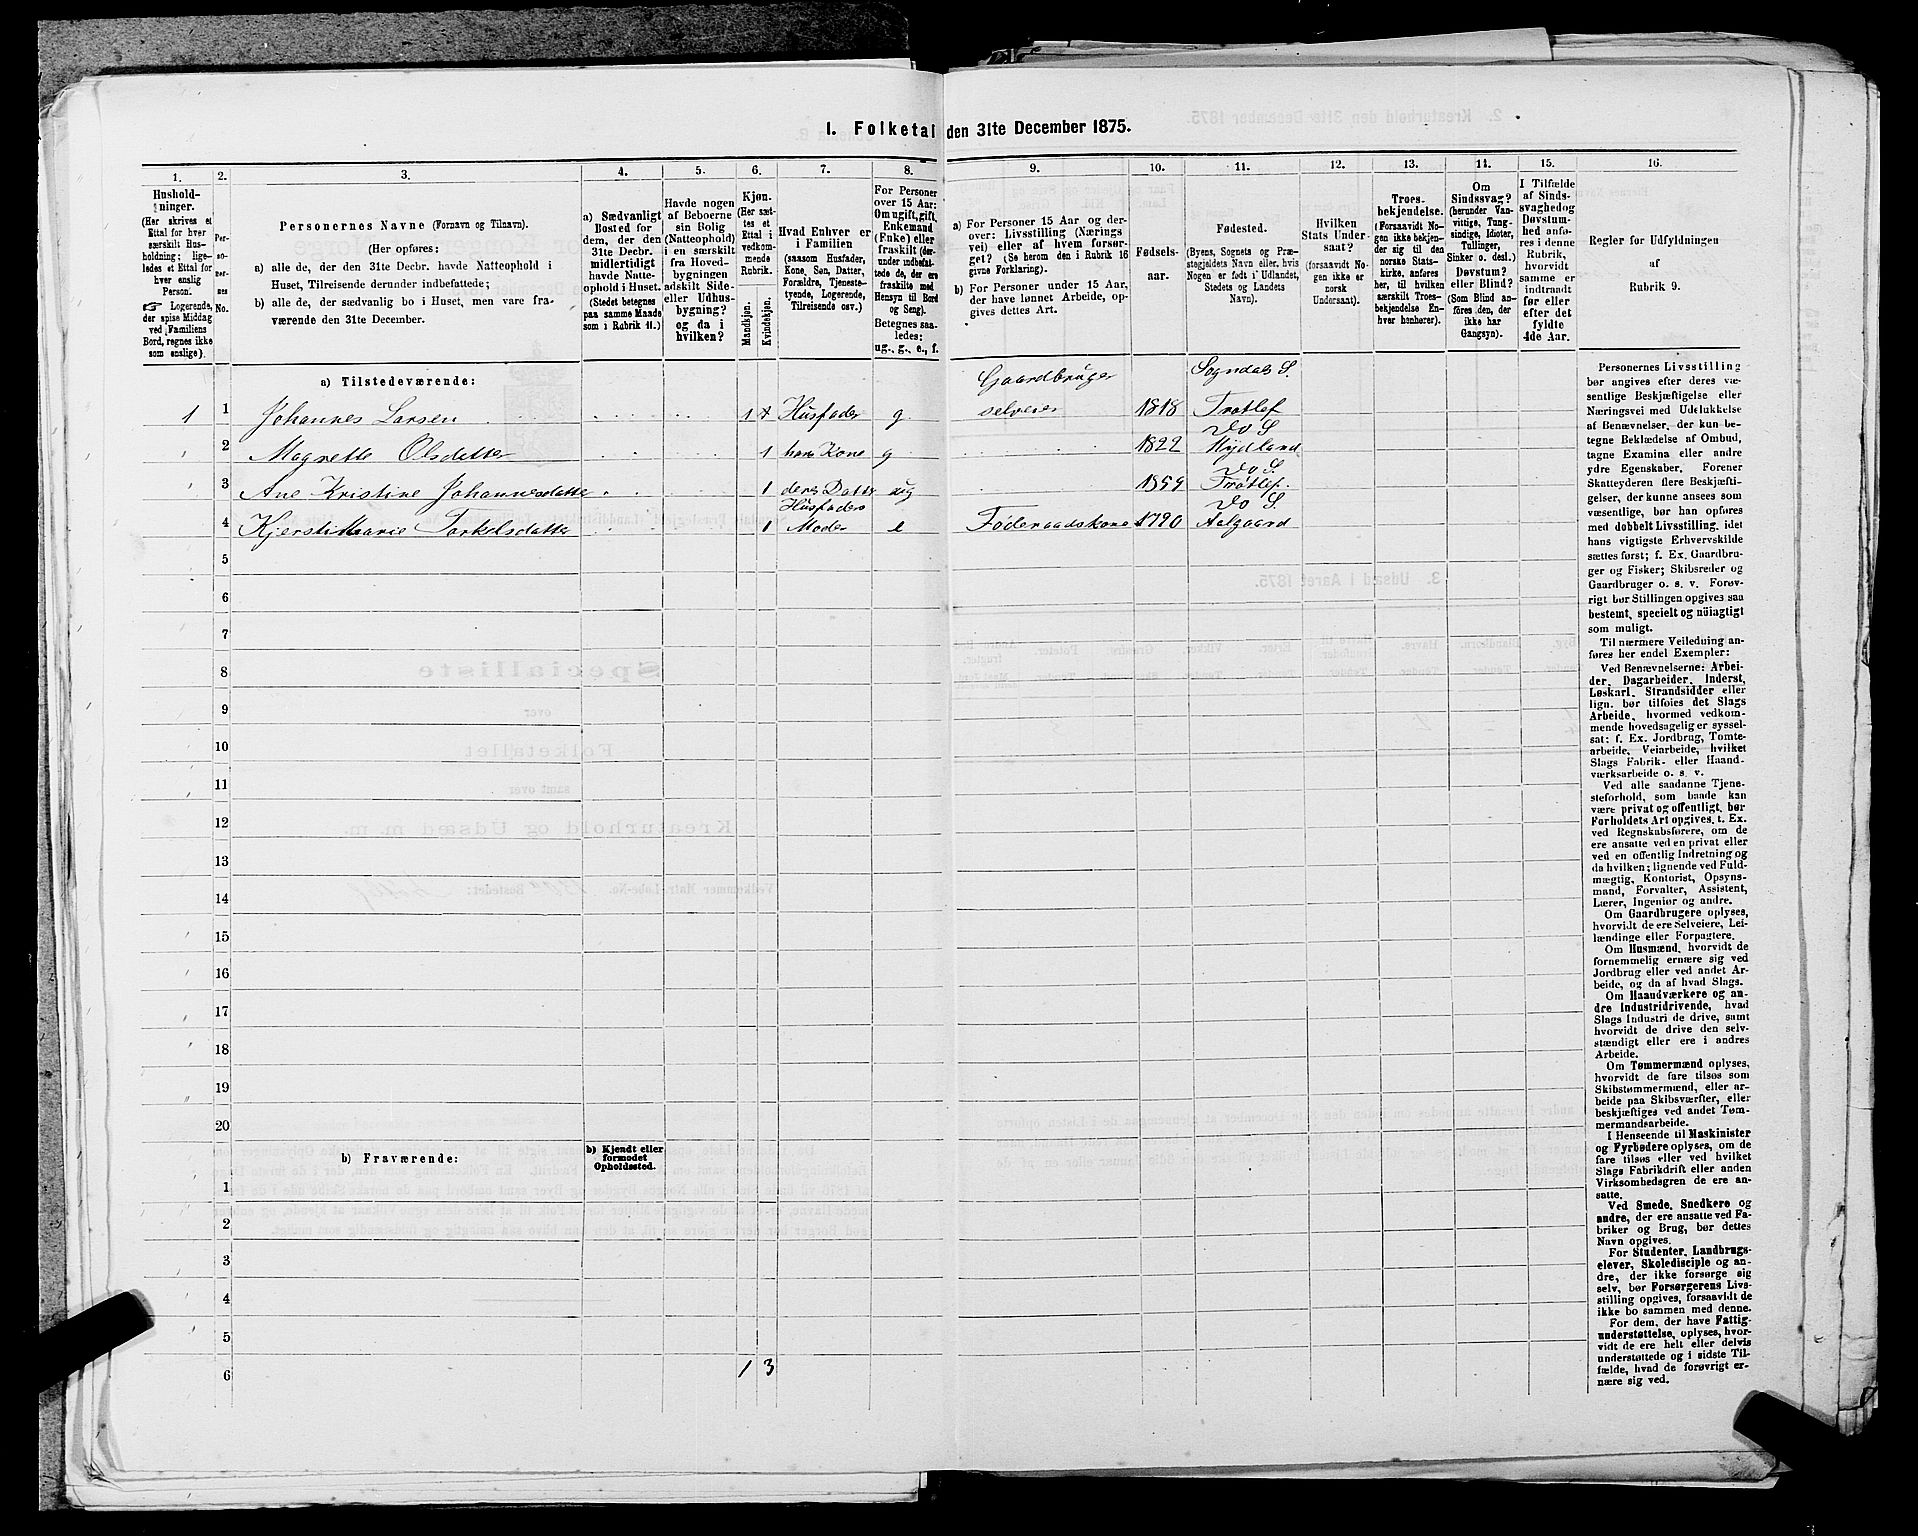 I. Folketal den 31te December 1875.
1. 2. 3. 4. 5. 6. 7. 8. 9. 10. 11. 12. 13. 14. 15. 16.
Hushold-
ninger.
(Her skrives et
Ettal for hver
særskilt Hus-
holdning; lige-
ledes et Ettal for
hver enslig
Person.
☞ Logerende,
der spise Middag
ved Familiens
Bord, regnes ikke
som enslige).
Per-
so-
ner-
nes
No.
Personernes Navne (Fornavn og Tilnavn).
(Her opføres:
a) alle de, der den 31te Decbr. havde Natteophold i
Huset, Tilreisende derunder indbefattede;
b) alle de, der sædvanlig bo i Huset, men vare fra-
værende den 31te December.
a) Sædvanligt
Bosted for
dem, der den
31te Decbr.
midlertidigt
havde Natte-
ophold i Huset.
(Stedet betegnes
paa samme Maade
som i Rubrik 11.)
Havde nogen
af Beboerne
sin Bolig
(Natteophold)
i en særskilt
fra Hoved-
bygningen
adskilt Side-
eller Udhus-
bygning?
og da i
hvilken?
Kjøn.
(Her sæt-
tes et
Ettal i
vedkom-
mende
Rubrik.
Mandkjøn.
Kvindekjøn.
Hvad Enhver er
i Familien
(saasom Husfader,
Kone, Søn, Datter,
Forældre, Tjeneste-
tyende, Logerende,
Tilreisende osv.)
For Personer
over 15 Aar:
Om ugift, gift,
Enkemand
(Enke) eller
fraskilt (der-
under indbefat-
tede de, der ere
fraskilte med
Hensyn til Bord
og Seng).
Betegnes saa-
ledes:
ug., g., e., f.
a) For Personer 15 Aar og der-
over: Livsstilling (Nærings
vei) eller af hvem forsør-
get? (Se herom den i Rubrik 16
givne Forklaring).
b) For Personer under 15 Aar,
der have lønnet Arbeide, op-
gives dettes Art.
Fødsels-
aar.
Fødested.
(Byens, Sognets og Præ-
stegjeldets Navn eller, hvis
Nogen er født i Udlandet,
Stedets og Landets
Navn).
Hvilken
Stats Under-
saat?
(forsaavidt No-
gen ikke er
norsk
Undersaat).
Troes-
bekjendelse.
(Forsaavidt No-
gen ikke bekjen-
der sig til den
norske Stats-
kirke, anføres
her, til hvilken
særskilt Troes-
bekjendelse En-
hver henhører).
Om
Sindssvag?
(herunder Van-
vittige, Tung-
sindige, Idioter,
Tullinger,
Sinker o. desl.)
Døvstum?
eller Blind?
(Som Blind an-
føres den, der
ikke har
Gangsyn).
I Tilfælde
af Sinds-
svaghed og
Døvstum-
hed anfø-
res i denne
Rubrik,
hvorvidt
samme er
indtraadt
før eller
efter det
fyldte
4de Aar.
Regler for Udfyldningen
af
Rubrik 9.
a) Tilstedeværende:
1 1 Johannes Larsen 1 Husfader g Gaardbruger selveier 1818 Sogndals S. Trøtlef
2 Magrette Olsdatter 1 hans Kone g 1822 do S. Mydland
3 Ane Kristine Johannesdatter 1 deres Datter ug 1859 do S. Trøtlef.
4 Kjersti Marie Torkelsdatter 1 Husfaders Moder e Føderaadskone 1790 do S. Aalgaard
5
6
7
8
9
10
11
12
13
14
15
16
17
18
19
20
b) Fraværende:
b) Kjendt eller
formodet
Opholdssted.
1
2
3
4
5
6
1 3
Personernes Livsstilling
bør angives efter deres væ-
sentlige Beskjæftigelse eller
Næringsvei med Udelukkelse
af Benævnelser, der kun be-
tegne Beklædelse af Ombud,
tagne Examina eller andre
ydre Egenskaber. Forener
Skatteyderen flere Beskjæfti-
gelser, der kunne ansees som
væsentlige, bør han opføres
med dobbelt Livsstilling, idet
hans vigtigste Erhvervskilde
sættes først; f. Ex. Gaardbru-
ger og Fisker; Skibsreder og
Gaardbruger o. s. v. Forøv-
rigt bør Stillingen opgives saa
bestemt, specielt og nøiagtigt
som muligt.
Til nærmere Veiledning an-
føres her endel Exempler:
Ved Benævnelserne: Arbei-
der, Dagarbeider, Inderst,
Løskarl, Strandsidder eller
lign. bør tilføies det Slags
Arbeide, hvormed vedkom-
mende hovedsagelig er syssel-
sat; f. Ex. Jordbrug, Tomte-
arbeide, Veiarbeide, hvilket
Slags Fabrik- eller Haand-
værksarbeide o. s. v.
Ved alle saadanne Tjene-
steforhold, som baade kan
være privat og offentligt, bør
Forholdets Art opgives, t. Ex.
ved Regnskabsførere, om de
ere ansatte ved en privat eller
ved en offentlig Indretning og
da hvilken; lignende ved Fuld-
mægtig, Kontorist, Opsyns-
mand, Forvalter, Assistent,
Lærer, Ingeniør og andre.
Om Gaardbrugere oplyses,
hvorvidt de ere Selveiere, Lei-
lændinge eller Forpagtere.
Om Husmænd, hvorvidt de
fornemmelig ernære sig ved
Jordbrug eller ved andet Ar-
beide, og da af hvad Slags.
Om Haandværkere og an-
dre Industridrivende, hvad
Slags Industri de drive, samt
hvorvidt de drive den selv-
stændigt eller ere i andres
Arbeide.
Om Tømmermænd oplyses,
hvorvidt de fare tilsøs som
Skibstømmermænd, eller ar-
beide paa Skibsværfter, eller
beskjæftiges ved andet Tøm-
mermandsarbeide.
I Henseende til Maskinister
og Fyrbødere oplyses, om de
fare tilsøs eller ved hvilket
Slags Fabrikdrift eller anden
Virksomhedsgren de ere an-
satte.
Ved Smede, Snedkere og
andre, der ere ansatte ved Fa-
briker og Brug, bør dettes
Navn opgives.
For Studenter, Landbrugs-
elever, Skoledisciple og an-
dre, der ikke forsørge sig
selv, bør Forsørgerens Livs-
stilling opgives, forsaavidt de
ikke bo sammen med denne.
For dem, der have Fattig-
understøttelse, oplyses, hvor-
vidt de ere helt eller delvis
understøttede og i sidste Til-
fælde, hvad de forøvrigt er-
nære sig ved.